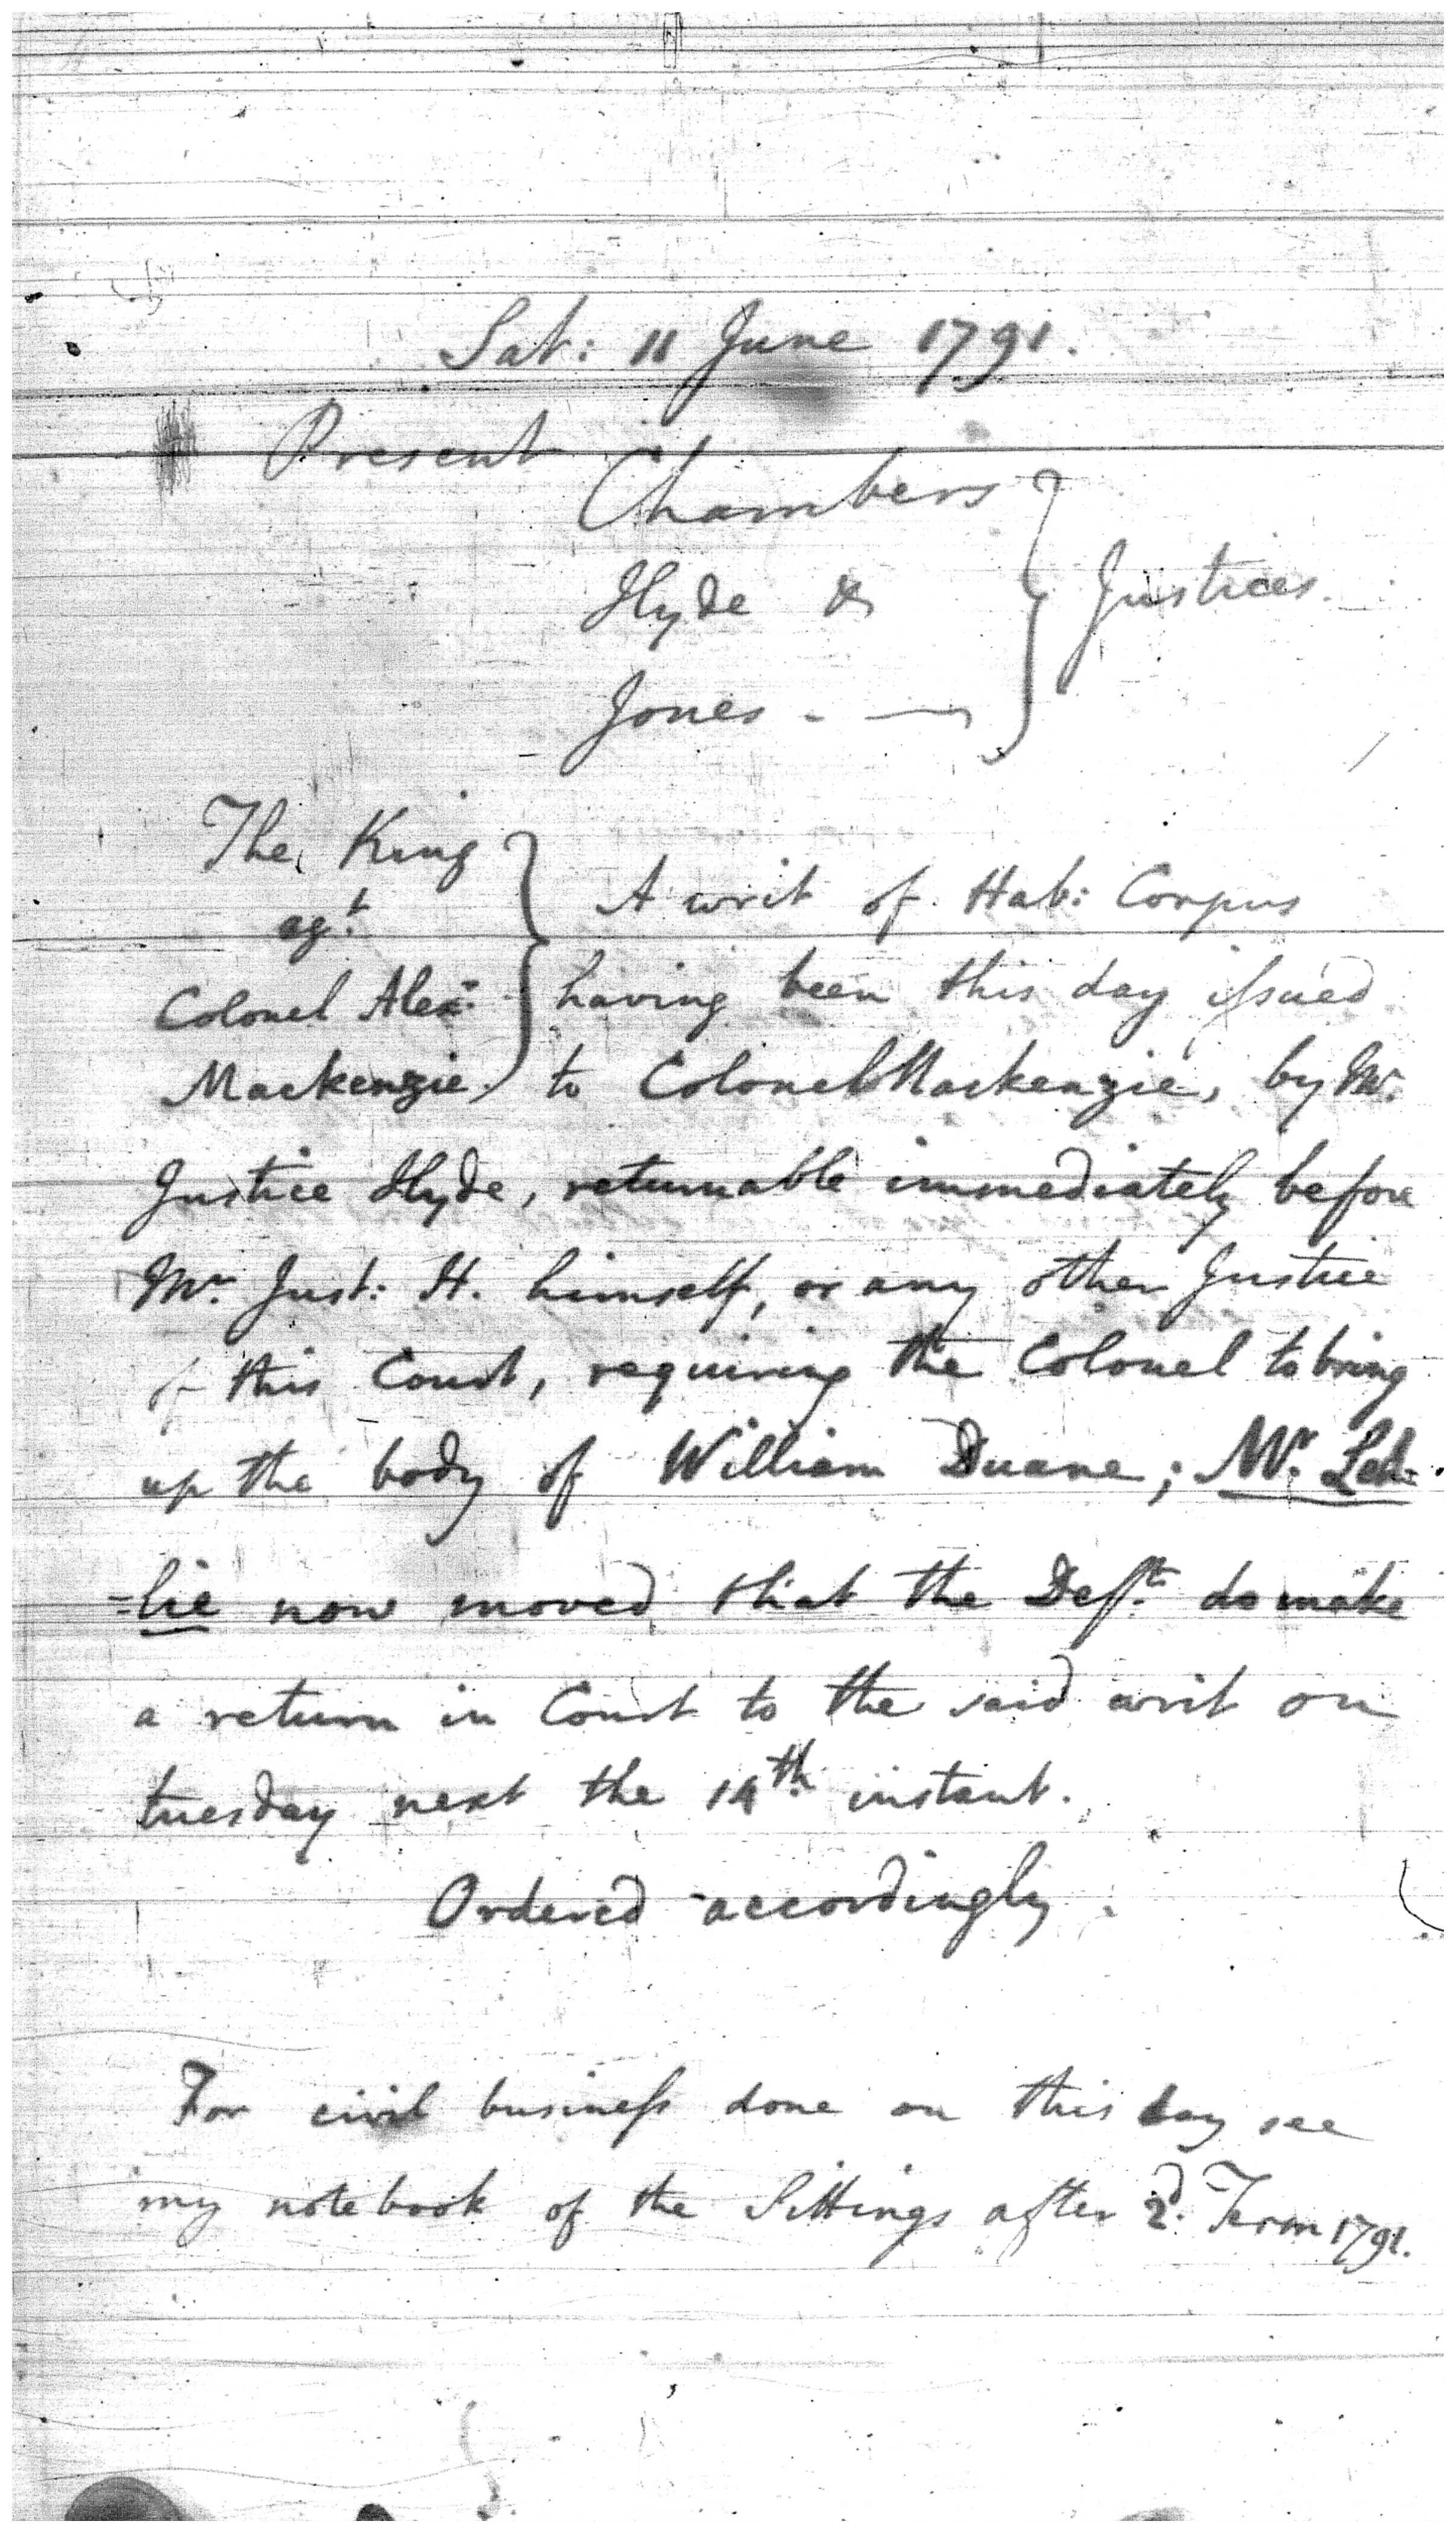 Sat: 11 June 1791.
Present
Chambers
Hyde & Justices.
Jones. —
The King
agt.
A writ of Hab: Corpus
Colonel Alexr. having been this day issued
Mackenzie. to Colonel Mackenzie, by Mr.
Justice Hyde, returnable immediately before
Mr. Just: H. himself, or any other Justice
of this Court, requiring the Colonel to bring
up the body of William Duane; Mr. Led-
=lie now moved that the Deft. do make
a return in Court to the said writ on
tuesday next the 14th. instant.
Ordered accordingly.
For civil business done on this day see
my notebook of the Sittings after 2d. Term 1791.